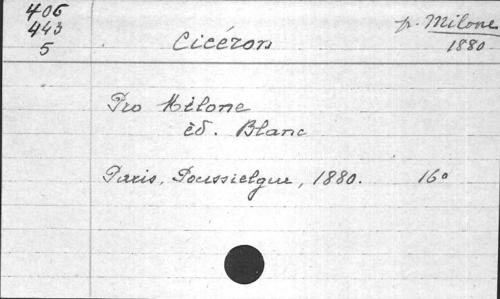 406
443
5
p. Milone
1880
Cicéron
Pro Milone
éd. Blanc
Paris, Poussielgue, 1880. 16°